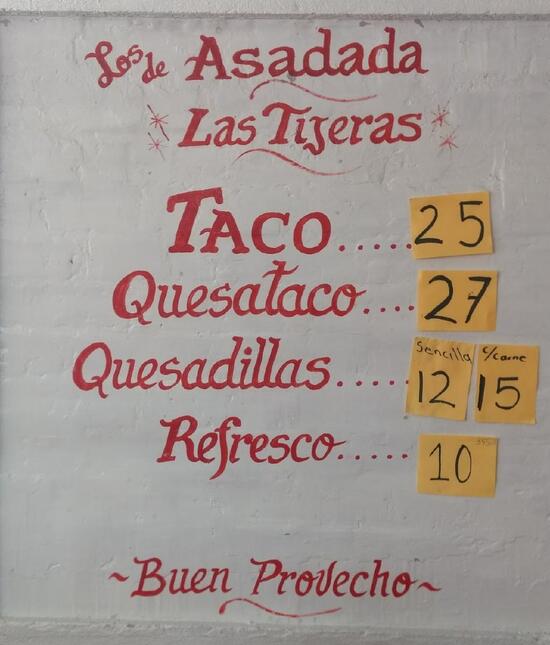 Los de Asadada
Las Tijeras
Taco..... 25
Quesataco.... 27
Sencilla c/carne
Quesadillas..... 12 15
Refresco..... 10
~Buen Provecho~